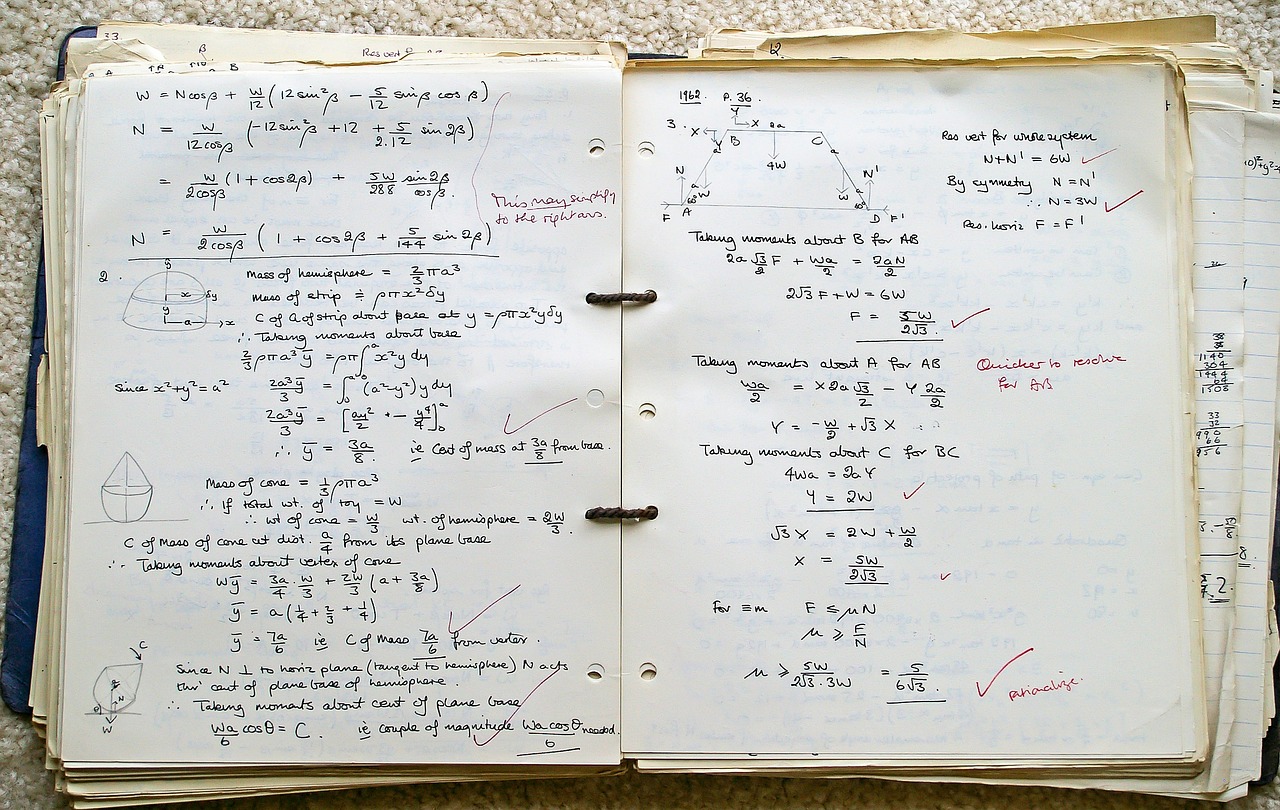 33.
β
Res vert
A B
W = Ncosβ + W/12 (12 sin²β − 5/12 sinβ cosβ)
N = W/12cosβ (−12sin²β + 12 + 5/2.12 sin 2β)
= W/2cosβ (1 + cos2β) + 5W/288 sin2β/cosβ.
This may simplify
to the right ans.
N = W/2cosβ (1 + cos2β + 5/144 sin 2β)
2.
y
x δy
y
a x
Mass of hemisphere = 2/3 πa³
Mass of strip ≑ ρπx²δy
C of G of strip about base at y = ρπx²yδy
∴ Taking moments about base
2/3 ρπa³ȳ = ρπ∫₀ᵃ x²y dy
Since x²+y²=a² 2a³ȳ/3 = ∫₀ᵃ (a²−y²)y dy
2a³ȳ/3 = [ay²/2 − y⁴/4]₀ᵃ
∴ ȳ = 3a/8 ie Cent of mass at 3a/8 from base.
Mass of cone = 1/3 ρπa³
∴ If total wt. of toy = W
∴ wt of cone = W/3 wt. of hemisphere = 2W/3.
C of Mass of cone at dist. a/4 from its plane base
∴ Taking moments about vertex of cone
Wȳ = 3a/4 . W/3 + 2W/3 (a + 3a/8)
ȳ = a(1/4 + 2/3 + 1/4)
ȳ = 7a/6 ie C of Mass 7a/6 from vertex.
C
N
θ
W
Since N ⊥ to horiz plane (tangent to hemisphere) N acts
thro' cent of plane base of hemisphere.
∴ Taking moments about cent of plane base
Wa/6 cosθ = C. ie couple of magnitude Wa cosθ/6 needed.
12.
1962. P. 36.
3. X Y X 2a
B C
a 4W a
N a W W a N'
F A 60° 60° D F'
Res vert for whole system
N+N' = 6W
By symmetry N = N'
∴ N = 3W
Res. horiz F = F'
Taking moments about B for AB
2a √3/2 F + Wa/2 = 2aN/2
2√3 F + W = 6W
F = 5W/2√3.
Taking moments about A for AB
Quicker to resolve
for AB
Wa/2 = X 2a √3/2 − Y 2a/2
Y = −W/2 + √3 X
Taking moments about C for BC
4Wa = 2aY
Y = 2W
√3 X = 2W + W/2
X = 5W/2√3
For ≡m F ≤ μN
μ ≥ F/N
μ ≥ 5W/2√3.3W = 5/6√3.
rationalize.
38
38
1140
304
1444
64
1508
33
32
990
66
956